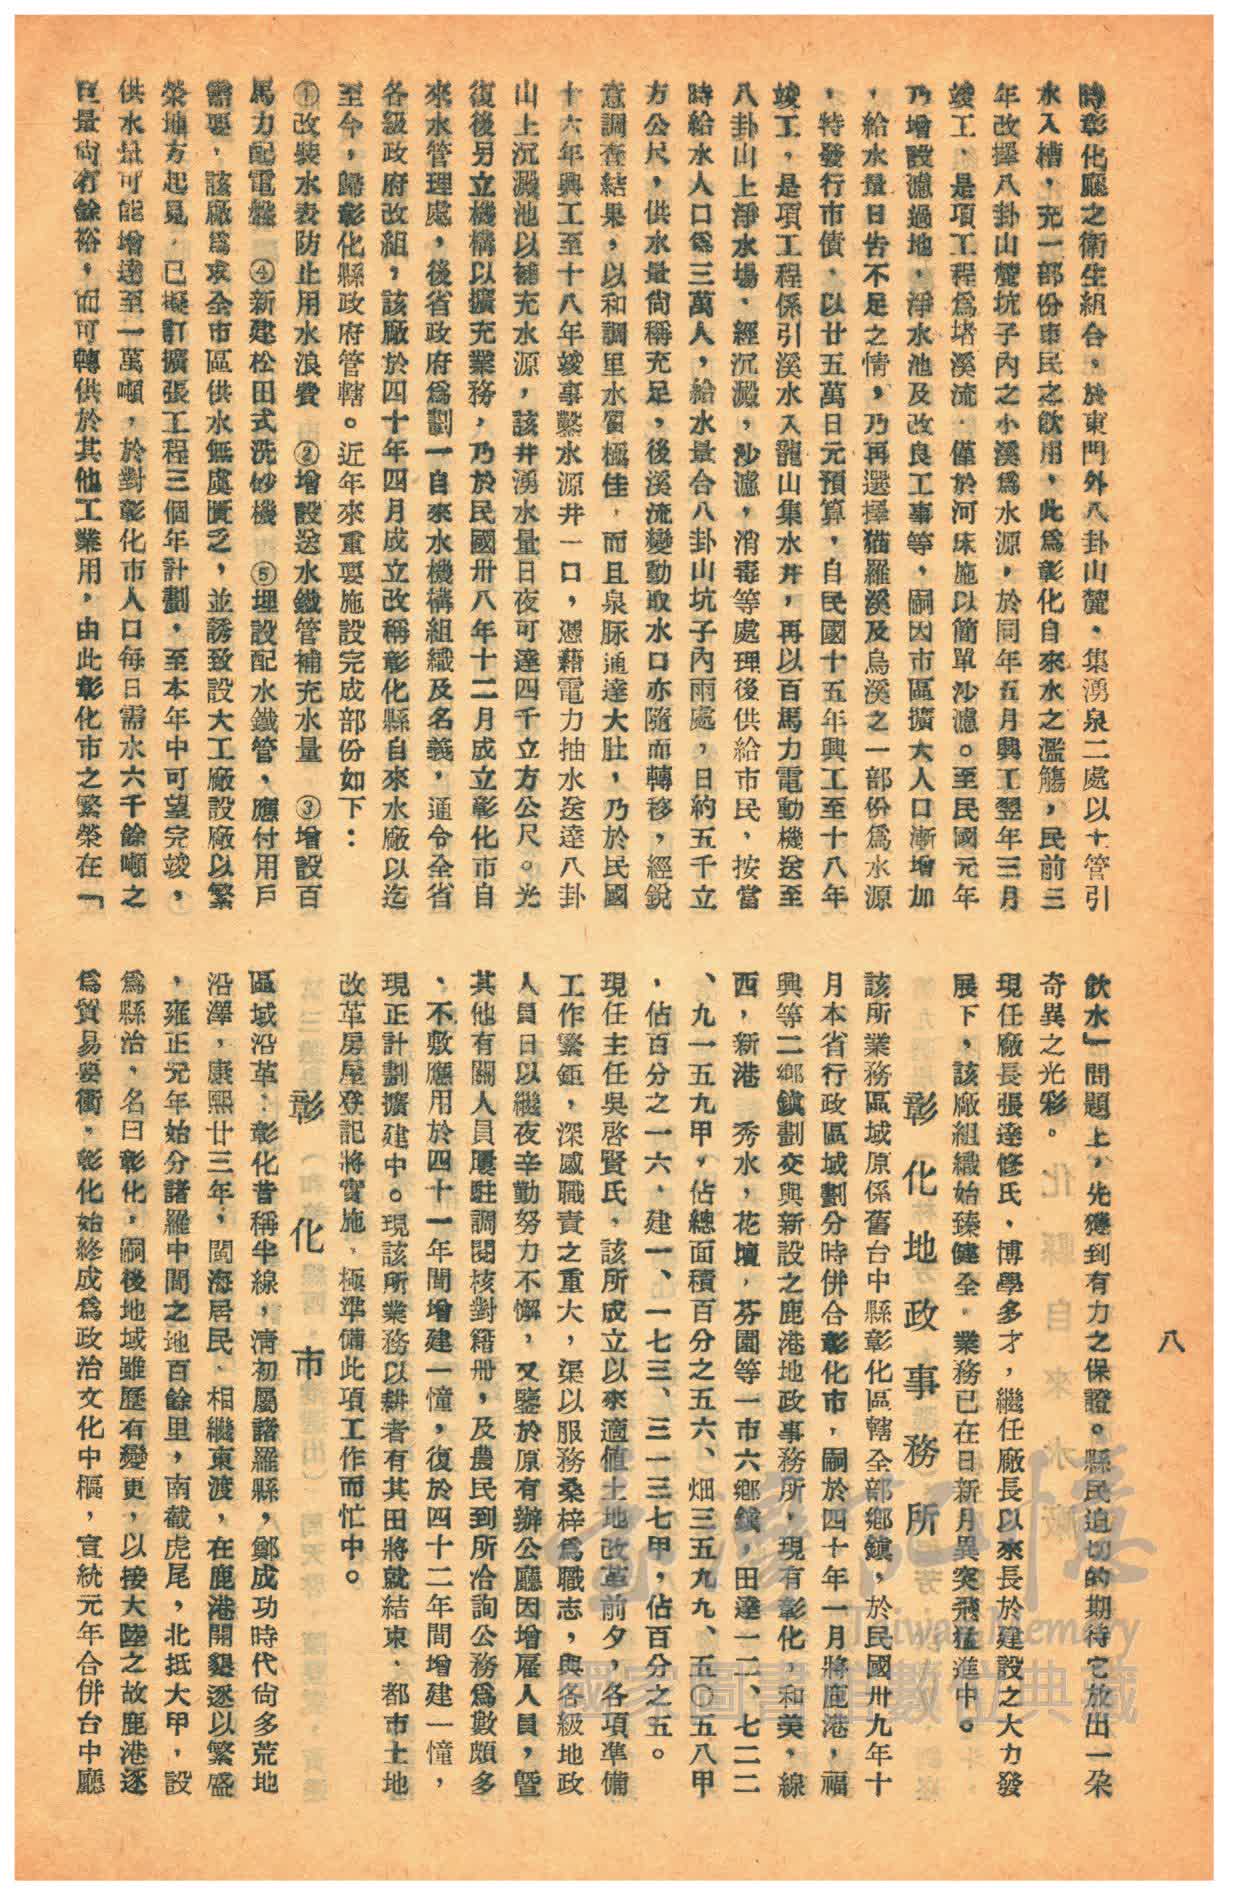 時彰化廳之衛生組合，於東門外八卦山麓、集湧泉二處以土管引
水入槽，充一部份市民之飲用，此爲彰化自來水之濫觴，民前三
年改擇八卦山麓坑子內之小溪爲水源，於同年五月興工翌年三月
竣工、是項工程爲堵溪流、僅於河床施以簡單沙濾。至民國元年
乃增設濾過地，淨水池及改良工事等，嗣因市區擴大人口漸增加
，給水量日告不足之情，乃再選擇猫羅溪及烏溪之一部份爲水源
，特發行市債，以廿五萬日元預算，自民國十五年興工至十八年
竣工，是項工程係引溪水入龍山集水井，再以百馬力電動機送至
八卦山上淨水場、經沉澱，沙濾，消毒等處理後供給市民，按當
時給水人口爲三萬人，給水量合八卦山坑子內兩處，日約五千立
方公尺，供水量尙稱充足，後溪流變動取水口亦隨而轉移，經銳
意調查結果，以和調里水質極佳，而且泉脉通達大肚，乃於民國
十六年興工至十八年竣事鑿水源井一口，憑藉電力抽水送達八卦
山上沉澱池以補充水源，該井湧水量日夜可達四千立方公尺。光
復後另立機構以擴充業務，乃於民國卅八年十二月成立彰化市自
來水管理處，後省政府爲劃一自來水機構組織及名義，通令全省
各級政府改組，該廠於四十年四月成立改稱彰化縣自來水廠以迄
至今，歸彰化縣政府管轄。近年來重要施設完成部份如下：
①改裝水表防止用水浪費　②增設送水鐵管補充水量　③增設百
馬力配電盤　④新建松田式洗砂機　⑤埋設配水鐵管、應付用戶
需要，該廠爲求全市區供水無虞匱乏，並誘致設大工廠設廠以繁
榮地方起見，已擬訂擴張工程三個年計劃，至本年中可望完竣，
供水量可能增達至一萬噸，於對彰化市人口每日需水六千餘噸之
巨量尙有餘裕，而可轉供於其他工業用，由此彰化市之繁榮在「
飲水」問題上，先獲到有力之保證。縣民迫切的期待它放出一朶
奇異之光彩。
現任廠長張達修氏、博學多才，繼任廠長以來長於建設之大力發
展下，該廠組織始臻健全，業務已在日新月異突飛猛進中。
彰化地政事務所
該所業務區域原係舊台中縣彰化區轄全部鄉鎮，於民國卅九年十
月本省行政區域劃分時併合彰化市，嗣於四十年一月將鹿港，福
興等二鄉鎮劃交與新設之鹿港地政事務所，現有彰化，和美，線
西，新港　秀水，花壇，芬園等一市六鄉鎮，田達一二、七二二
、九一五九甲，佔總面積百分之五六、畑三五九九、五〇五八甲
，佔百分之一六、建一、一七三、三一三七甲，佔百分之五。
現任主任吳啓賢氏、該所成立以來適值土地改革前夕，各項準備
工作繁鉅，深感職責之重大，渠以服務桑梓爲職志，與各級地政
人員日以繼夜辛勤努力不懈，又鑒於原有辦公廳因增雇人員，暨
其他有關人員屢駐調閱核對籍冊，及農民到所洽詢公務爲數頗多
、不敷應用於四十一年間增建一幢，復於四十二年間增建一幢，
現正計劃擴建中。現該所業務以耕者有其田將就結束、都市土地
改革房屋登記將實施，極準備此項工作而忙中。
彰化市
區域沿革：彰化昔稱半線，淸初屬諸羅縣，鄭成功時代尙多荒地
沿澤，康熙廿三年，閩海居民、相繼東渡，在鹿港開墾逐以繁盛
，雍正元年始分諸羅中間之地百餘里，南截虎尾，北抵大甲，設
爲縣治，名曰彰化，嗣後地域雖歷有變更，以接大陸之故鹿港逐
爲貿易要衝，彰化始終成爲政治文化中樞，宣統元年合併台中廳
八
臺灣記憶
Taiwan Memory
國家圖書館數位典藏